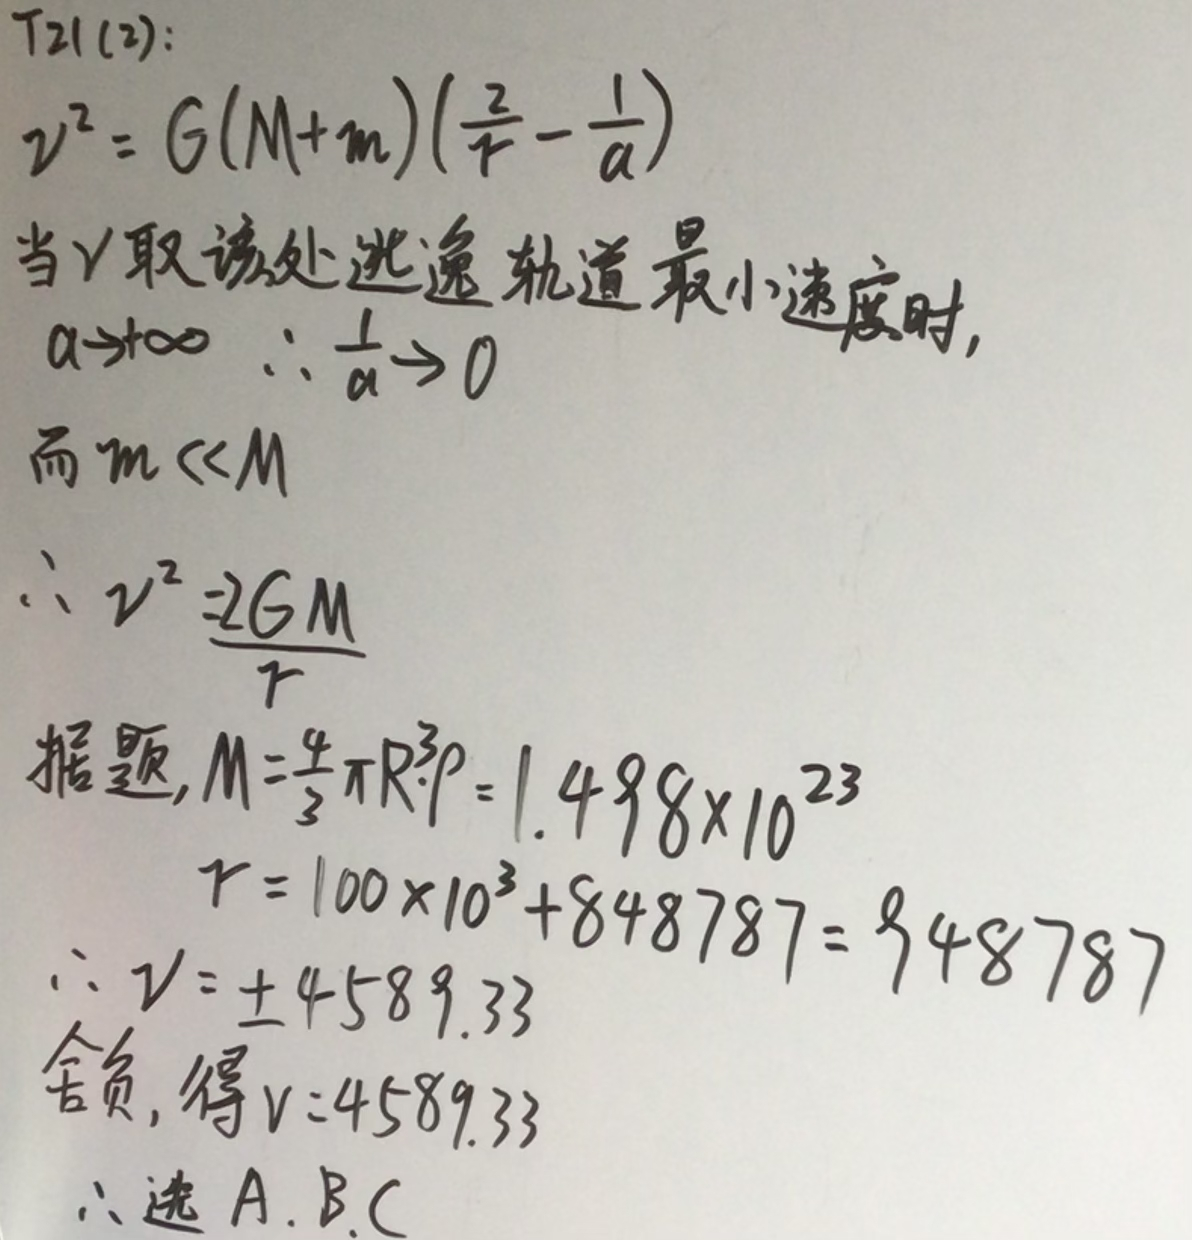 T21(2):
v² = G(M+m)(2/r - 1/a)
当V取该处逃逸轨道最小速度时,
a→+∞ ∴ 1/a → 0
而 m << M
∴ v² = 2GM/r
据题, M = 4/3 πR³·ρ = 1.498×10²³
r = 100×10³+848787 = 948787
∴ V = ±4589.33
舍负, 得 V = 4589.33
∴ 选 A. B. C